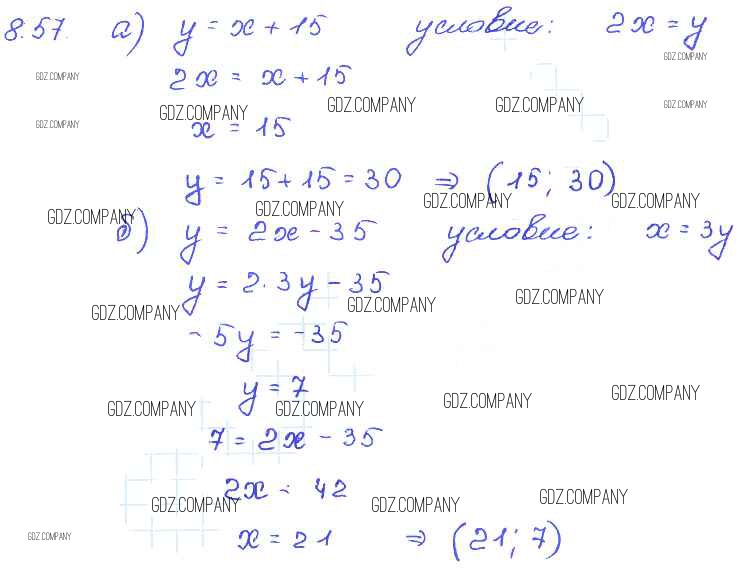 8.57. а) y = x + 15 условие: 2x = y
GDZ.COMPANY
GDZ.COMPANY 2x = x + 15
GDZ.COMPANY GDZ.COMPANY GDZ.COMPANY GDZ.COMPANY
GDZ.COMPANY x = 15
y = 15 + 15 = 30 ⇒ (15; 30)
GDZ.COMPANY GDZ.COMPANY GDZ.COMPANY GDZ.COMPANY
б) y = 2x - 35 условие: x = 3y
y = 2·3y - 35
GDZ.COMPANY GDZ.COMPANY GDZ.COMPANY
- 5y = -35
y = 7
GDZ.COMPANY GDZ.COMPANY GDZ.COMPANY GDZ.COMPANY
7 = 2x - 35
2x = 42
GDZ.COMPANY GDZ.COMPANY GDZ.COMPANY
GDZ.COMPANY x = 21 ⇒ (21; 7)